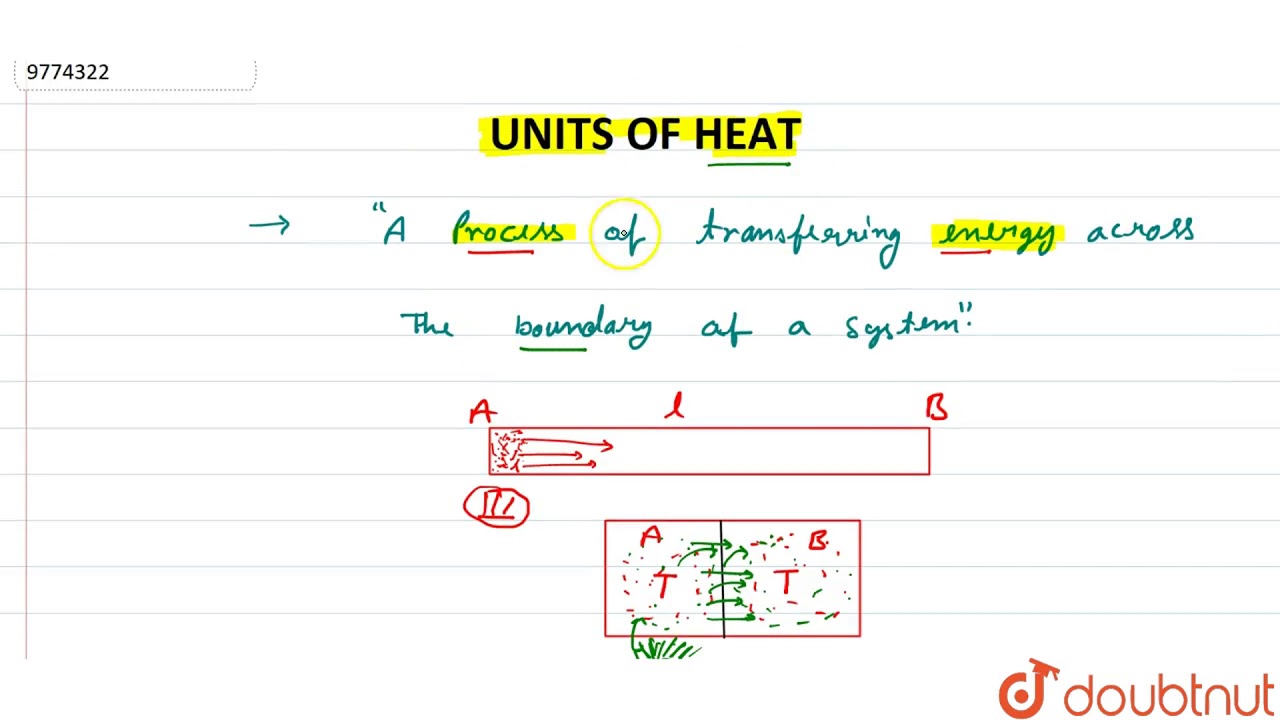 9774322
UNITS OF HEAT
→ "A Process of transferring energy across
The boundary of a system".
A l B
A B
T T
doubtnut